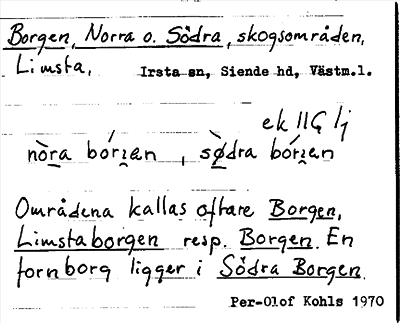 Borgen, Norra o. Södra, skogsområden,
Limsta, Irsta sn, Siende hd, Västm.l.
nòra bórɪan, sø̀dra bórɪan
Områdena kallas oftare Borgen,
Limstaborgen resp. Borgen. En
fornborg ligger i Södra Borgen.
Per-Olof Kohls 1970